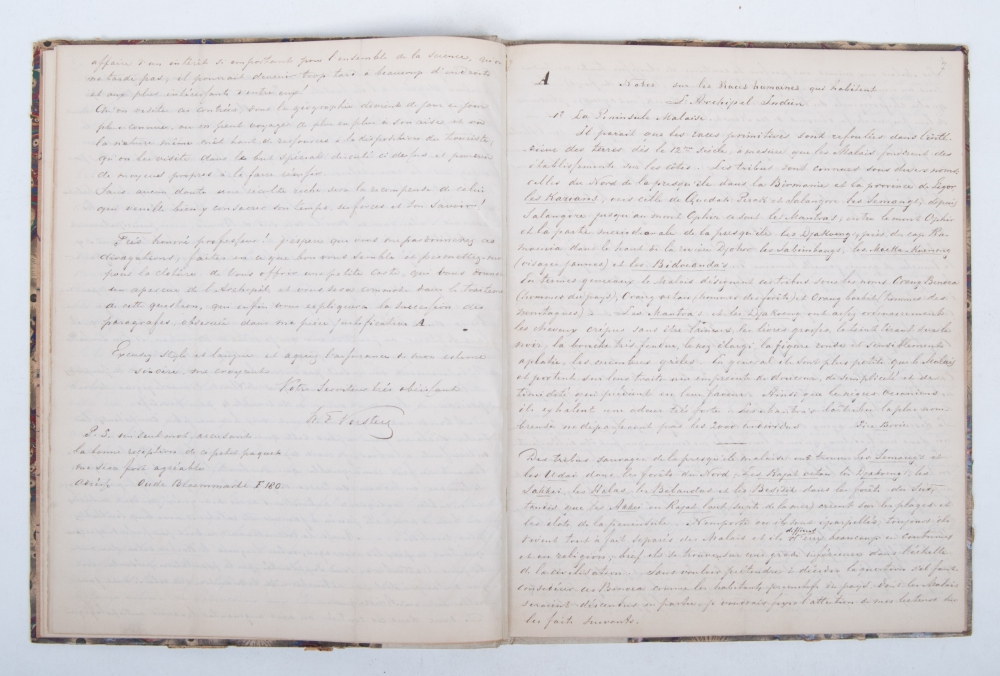 affaire d'un intérêt si important pour l'ensemble de la science, qu'on
ne tarde pas, il pourrait devenir trop tard à beaucoup d'endroits
et aux plus intéressants d'entre eux!
On en visite ces contrées, sous la géographie devient de jour en jour
plus connue, on en peut voyager de plus en plus à son aise et on
la nature même met tant de ressources à la disposition du touriste
qu'on les visite dans le but spécial et pourvu
de moyens propres à la faire
Sans aucun doute une récolte riche sera la récompense de celui
qui voudra bien y consacrer son temps, ses forces et son savoir!
Très honoré professeur! j'espère que vous me pardonnerez ces
divagations; faites en ce que bon vous semble et permettez-moi
pour la clôture de vous offrir une petite carte, qui vous donnera
un aperçu de l'Archipel et vous sera commode dans le traitement
de cette question, qui enfin vous expliquera la succession des
paragraphes, observée dans ma pièce justificative A
Excusez style et langue et agréez l'assurance de mon estime
sincère
Votre serviteur très obéissant
P. S. un seul mot, accusant
la bonne réception de ce petit paquet
me sera fort agréable
Oude Bloemmarkt F 180.
7
A
Notes sur les Races humaines qui habitent
L'Archipel Indien
1° La Péninsule Malaise
Il paraît que les races primitives sont refoulées dans l'inté-
rieur des terres dès le 12me Siècle, à mesure que les Malais fondirent des
établissements sur les côtes. Les tribus sont connues sous divers noms,
celles du Nord de la presqu'île dans la Birmanie et la province de Ligor
les Karians, ceux celle de Quedah, Perak et Salangor les Semangs; depuis
Salangore jusqu'au mont Ophir ce sont les Mantras; entre le mont Ophir
et la partie méridionale de la presqu'île les Djakong, près du cap Ro-
mania dans le haut de la rivière Djohor les Sabimbangs, les Mokka-Kuning
(visages jaunes) et les Bidoeandas
En termes généraux les Malais désignent ces tribus sous les noms Orang Benoea
(hommes du pays), Orang oetan (hommes des forêts) et Orang boekit (hommes des
montagnes). Les Mantras et les Djakong ont assez communément
les cheveux crépus sans être laineux, les lèvres grosses, le teint tirant sur le
noir, la bouche très fendue, le nez élargi, la figure ronde et sensiblement
aplatie, les membres grêles. En général ils sont plus petits que les Malais
et portent sur leurs traits une empreinte de douceur, de simplicité et de
timidité qui prévient en leur faveur. Ainsi que la nègres Océaniens
ils exhalent une odeur très forte. Les tribus la plus nom-
breuse ne dépassent pas les 2000 individus.
Des tribus sauvages de la presqu'île malaise on trouve les Semangs et
les Udai dans les forêts du Nord, les Rayat oetan, les Djakong, les
Sakkai, les Halas, les Belandas et les Besisik dans les forêts du Sud,
tandis que les Rayat laut (sujets de la mer) vivent sur les plages et
les îlots de la péninsule. N'importe où ils sont éparpillés, toujours ils
vivent tout à fait séparés des Malais et ils diffèrent d'eux beaucoup en coutumes
et en religion; bref ils se trouvent sur un grade inférieur dans l'échelle
de la civilisation. Sans vouloir prétendre à décider la question s'il faut
considérer ces Benoea comme les habitants primitifs du pays dont les Malais
seraient descendus en partie, je voudrais fixer l'attention de mes lecteurs sur
les faits suivants.